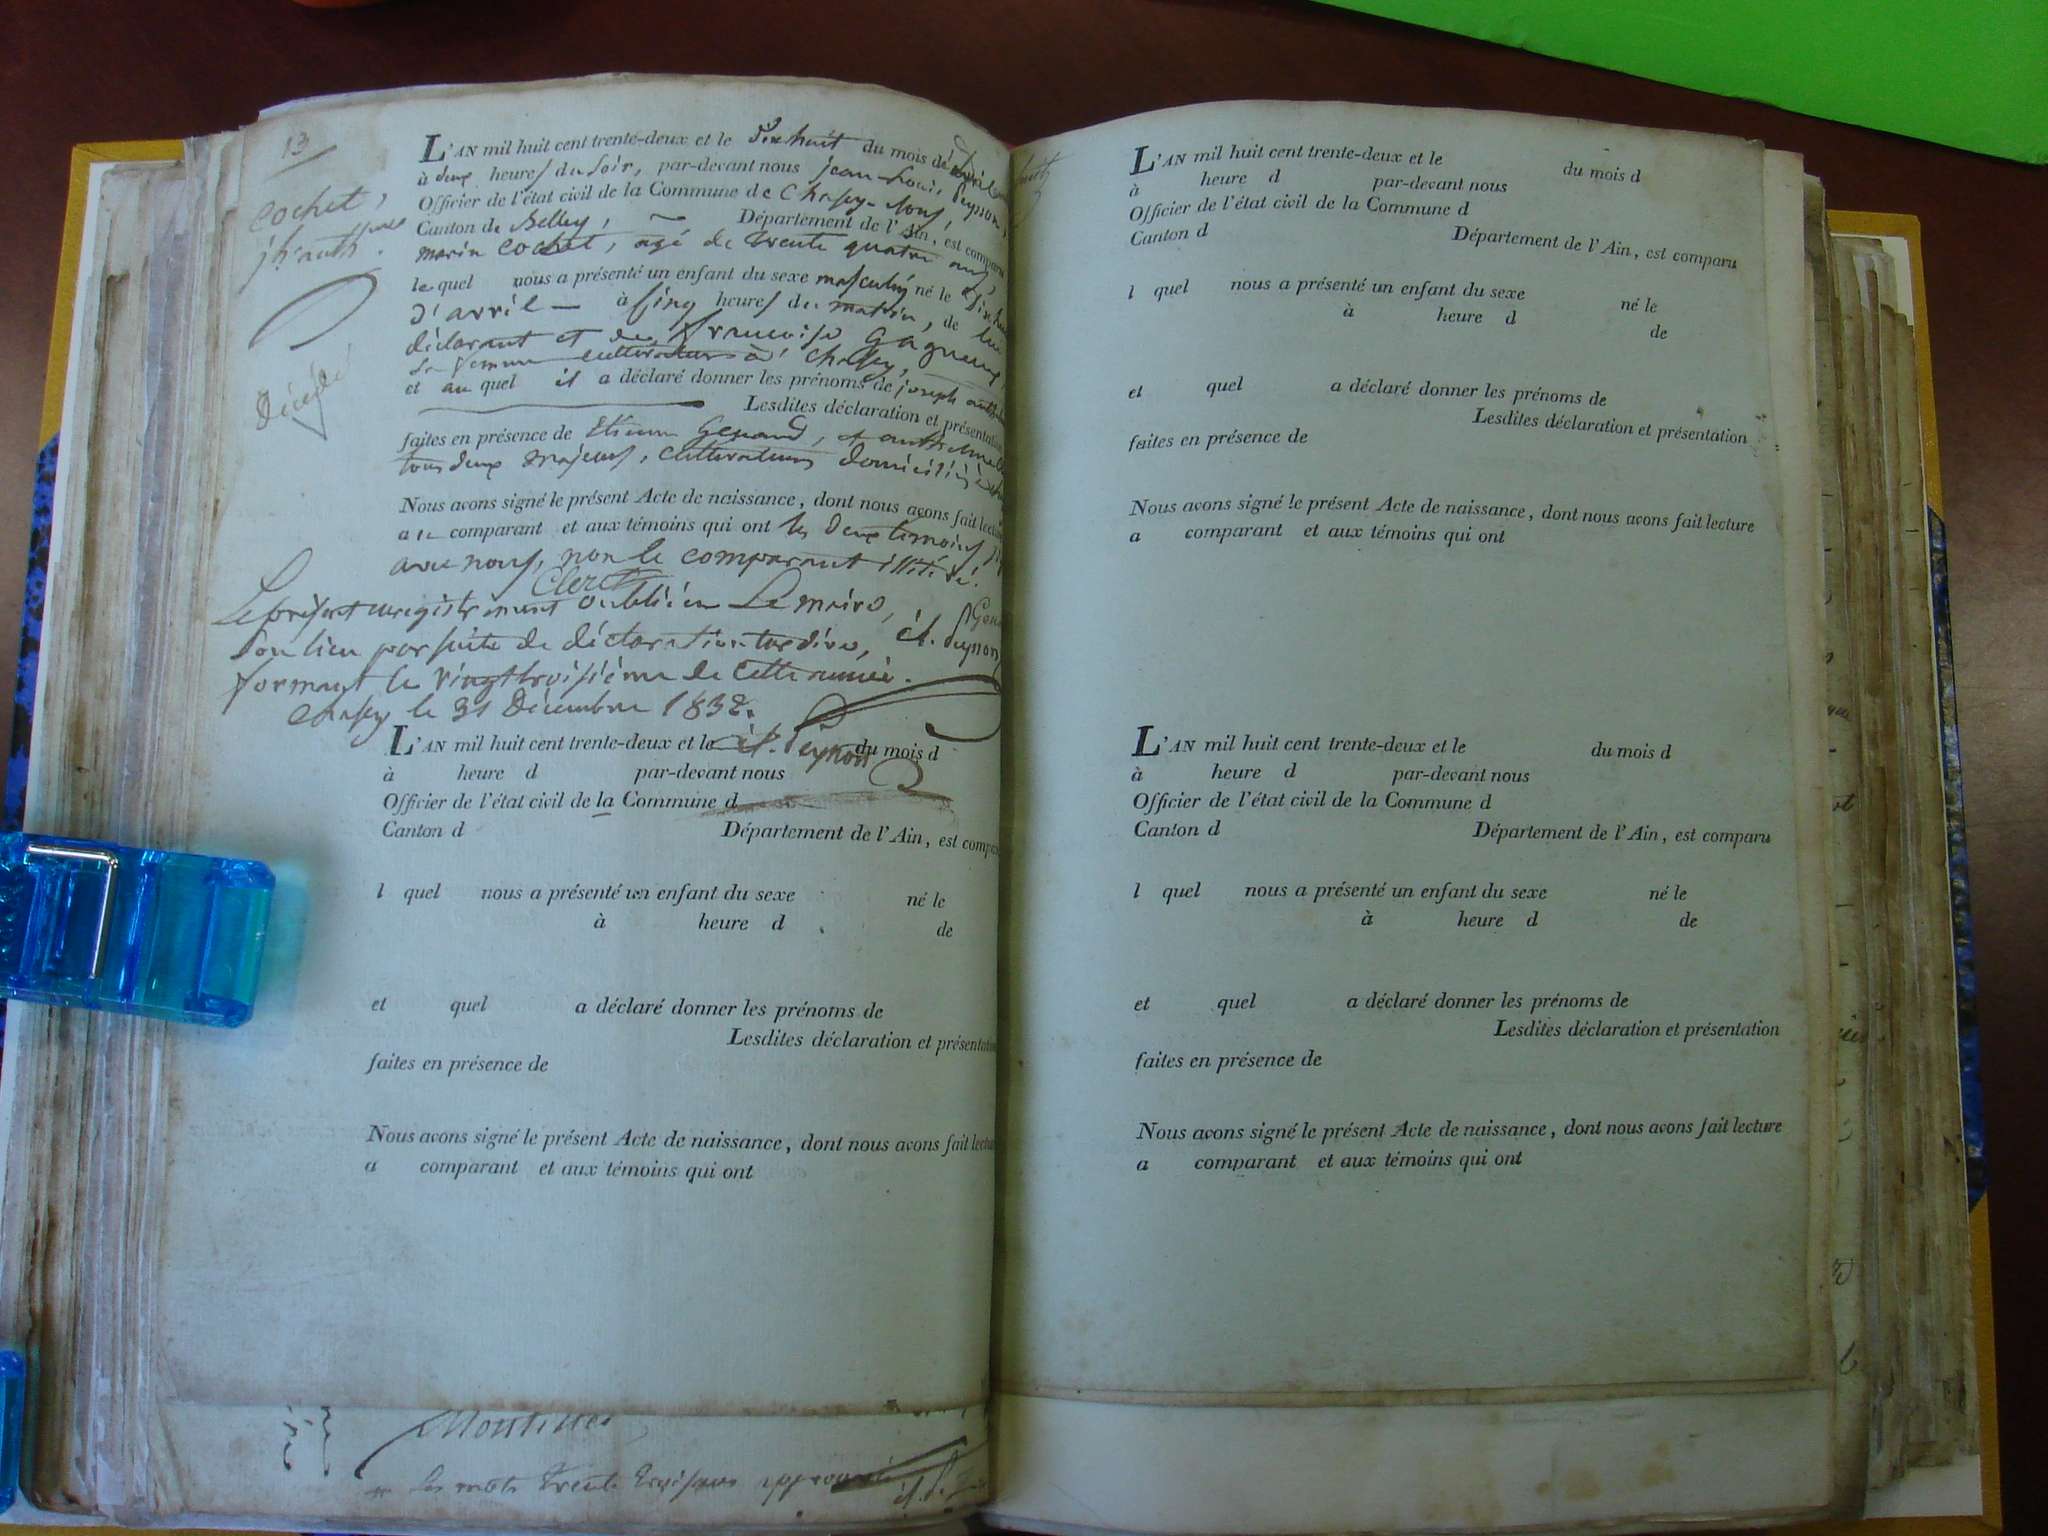 13
cochet,
jh. anth.me
Décédé
L'AN mil huit cent trente-deux et le Dixhuit du mois d'avril
à deux heures du soir, par-devant nous jean Louis Peysson,
Officier de l'état civil de la Commune de Chasey-
Canton de Belley, Département de l'Ain, est comparu
marin cochet, agé de trente quatre ans,
lequel nous a présenté un enfant du sexe masculin né le dixhuit
d'avril à cinq heures du matin, de lui
déclarant et de françoise
sa femme cultivateurs à chasey,
et auquel il a déclaré donner les prénoms de joseph
Lesdites déclaration et présentation
faites en présence de Etienne Genand, et
tous deux majeurs, cultivateurs domiciliés
Nous avons signé le présent Acte de naissance, dont nous avons fait lecture
au comparant et aux témoins qui ont les deux témoins
avec nous, non le comparant
Clerc
Le présent enregistrement oublié en Le maire,
Son lieu par suite de déclaration tardive,
formant le vingt troisième de cette année.
chasey le 31 Décembre 1832.
L'AN mil huit cent trente-deux et le du mois d
à heure d par-devant nous
Officier de l'état civil de la Commune d
Canton d Département de l'Ain, est comparu
l quel nous a présenté un enfant du sexe né le
à heure d de
et quel a déclaré donner les prénoms de
Lesdites déclaration et présentation
faites en présence de
Nous avons signé le présent Acte de naissance, dont nous avons fait lecture
a comparant et aux témoins qui ont
Les mots trente trois
L'AN mil huit cent trente-deux et le du mois d
à heure d par-devant nous
Officier de l'état civil de la Commune d
Canton d Département de l'Ain, est comparu
l quel nous a présenté un enfant du sexe né le
à heure d de
et quel a déclaré donner les prénoms de
Lesdites déclaration et présentation
faites en présence de
Nous avons signé le présent Acte de naissance, dont nous avons fait lecture
a comparant et aux témoins qui ont
L'AN mil huit cent trente-deux et le du mois d
à heure d par-devant nous
Officier de l'état civil de la Commune d
Canton d Département de l'Ain, est comparu
l quel nous a présenté un enfant du sexe né le
à heure d de
et quel a déclaré donner les prénoms de
Lesdites déclaration et présentation
faites en présence de
Nous avons signé le présent Acte de naissance, dont nous avons fait lecture
a comparant et aux témoins qui ont